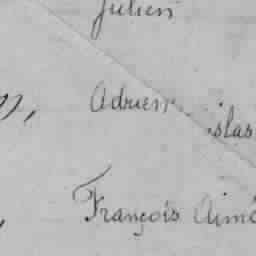 Julien
Adrien
François Aimé